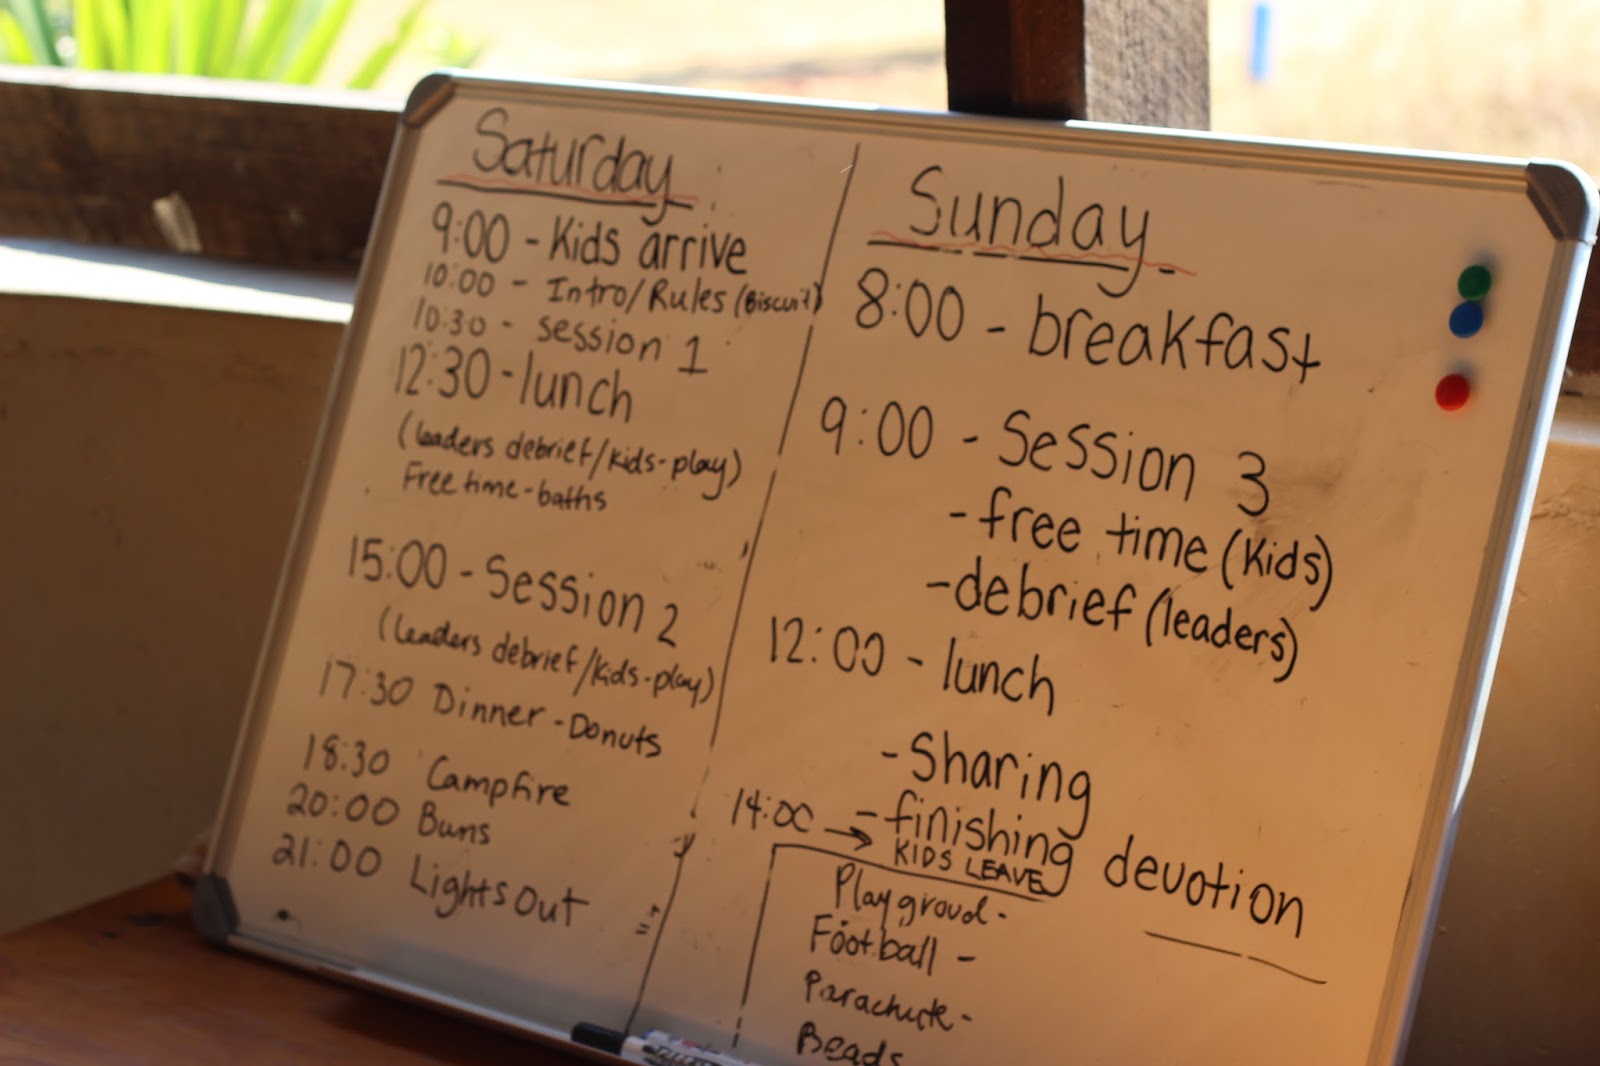 Saturday
9:00 - Kids arrive
10:00 - Intro/Rules (Biscuit)
10:30 - session 1
12:30 - lunch
(leaders debrief/kids-play)
Free time-baths
15:00 - Session 2
(leaders debrief/kids-play)
17:30 Dinner - Donuts
18:30 Campfire
20:00 Buns
21:00 Lights Out
Sunday
8:00 - breakfast
9:00 - Session 3
- free time (kids)
- debrief (leaders)
12:00 - lunch
- Sharing
14:00 → - finishing devotion
KIDS LEAVE
Playgroud -
Football -
Parachute -
Beads